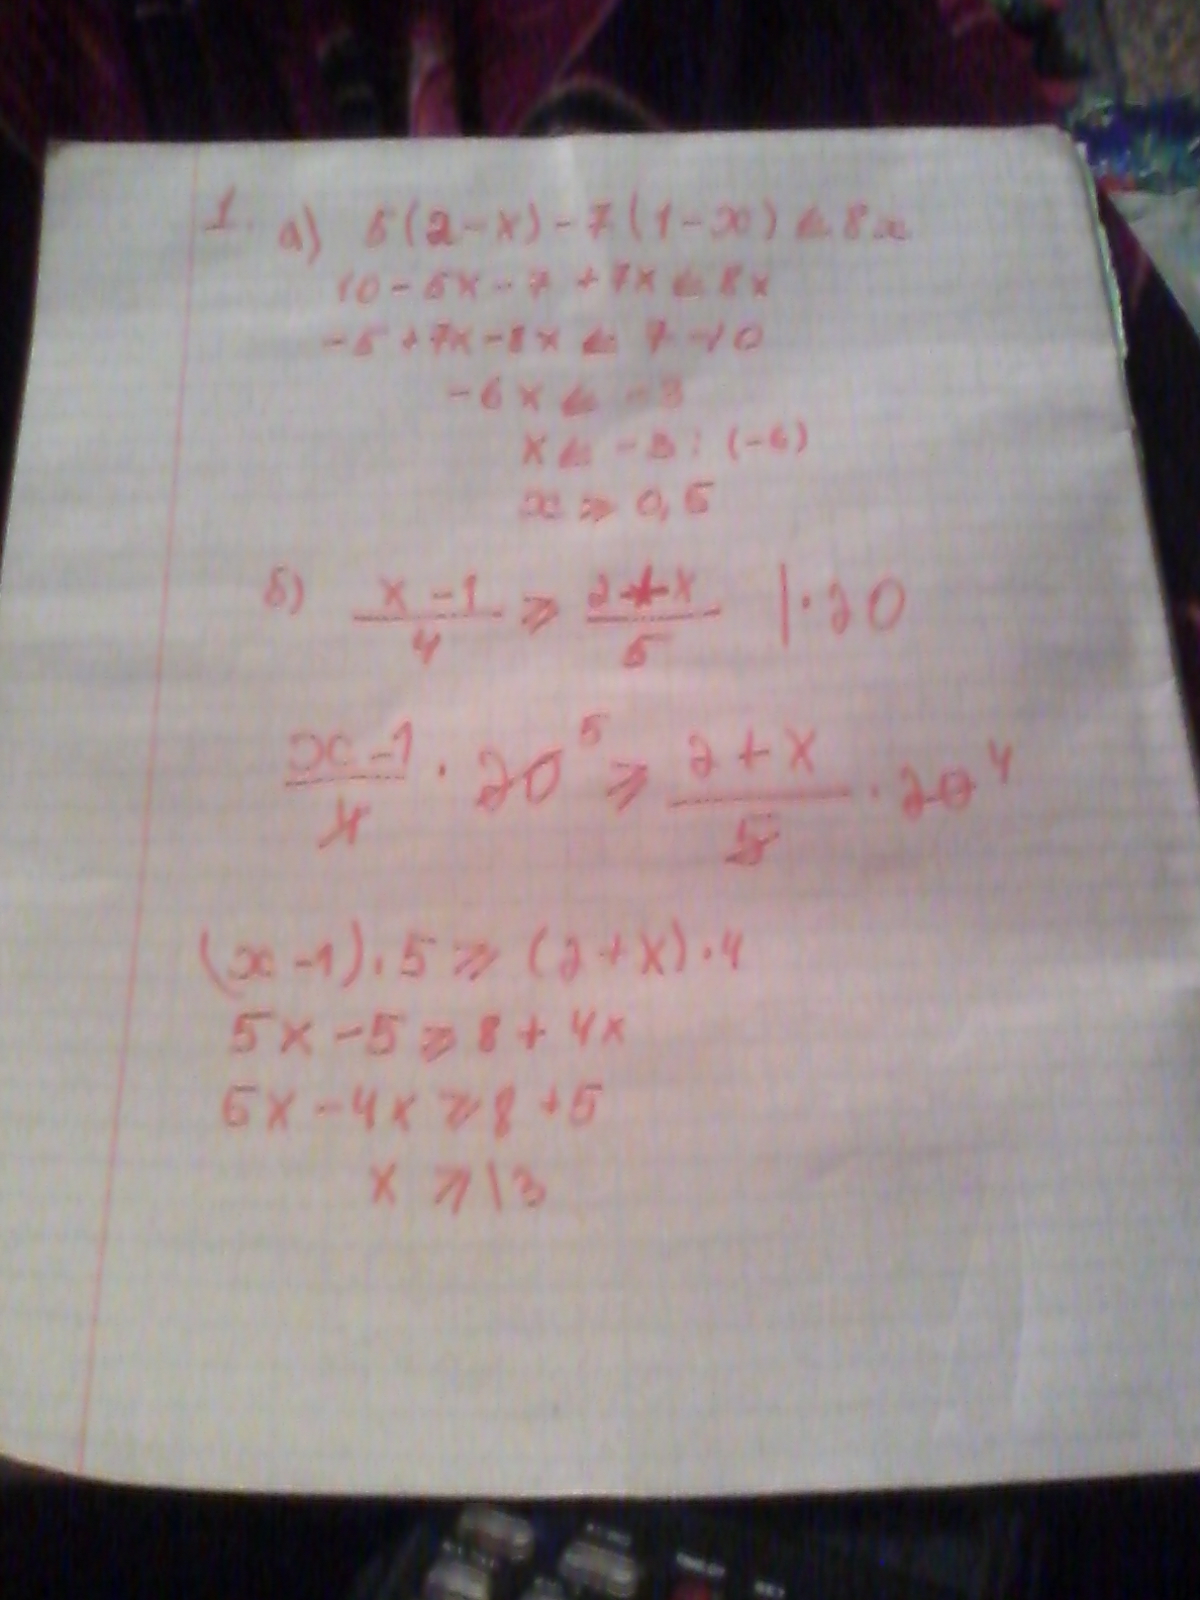 1. а) 5(2-x)-7(1-x) ≤ 8x
10-5x-7+7x ≤ 8x
-5+7x-8x ≤ 7-10
-6x ≤ -3
x ≤ -3:(-6)
x ≥ 0,5
б) x-1/4 ≥ 2+x/5 |·20
x-1/4 · 20⁵ ≥ 2+x/5 · 20⁴
(x-1)·5 ≥ (2+x)·4
5x-5 ≥ 8+4x
5x-4x ≥ 8+5
x ≥ 13